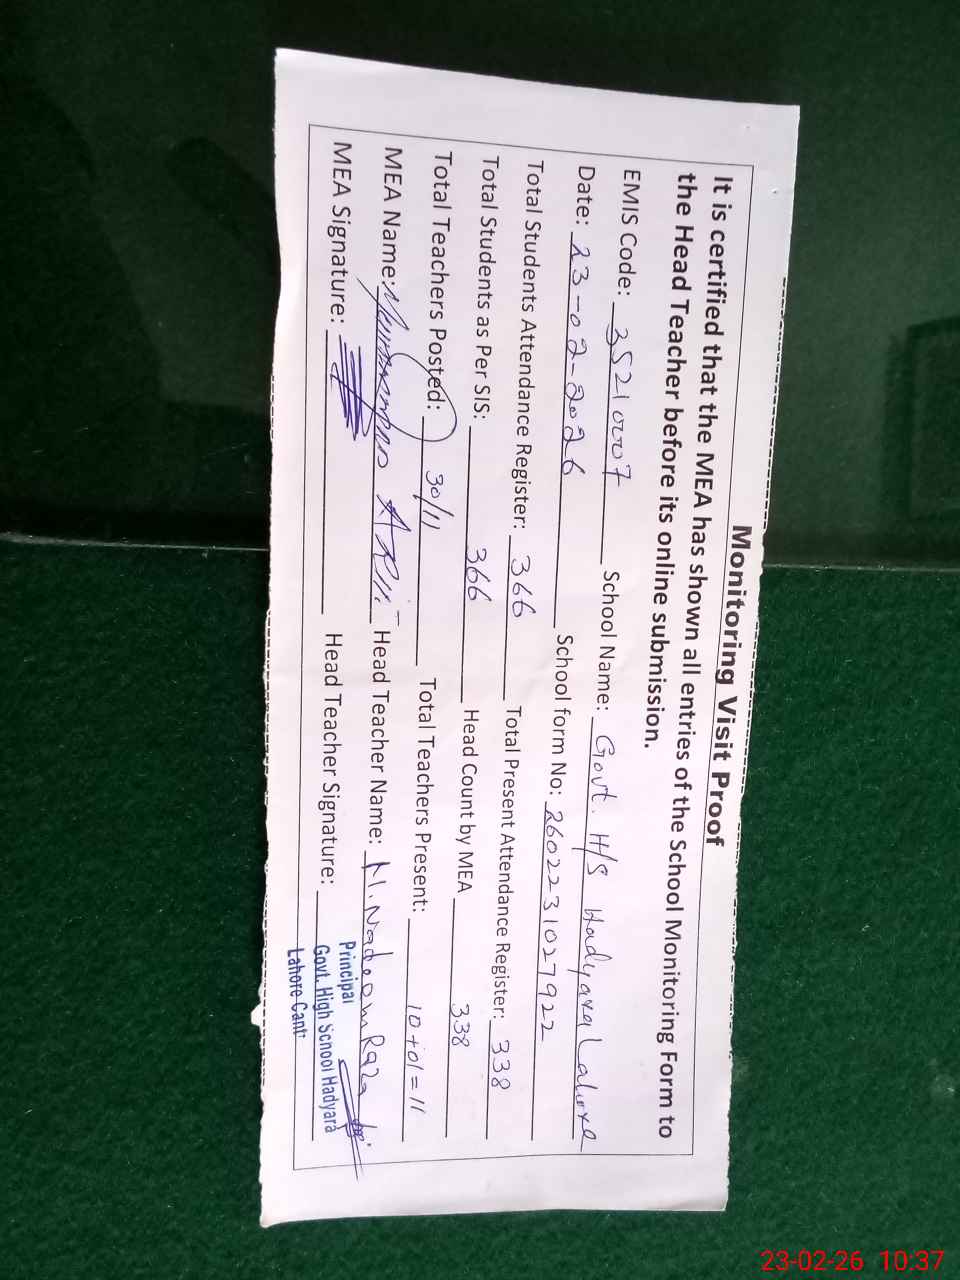 Monitoring Visit Proof
It is certified that the MEA has shown all entries of the School Monitoring Form to
the Head Teacher before its online submission.
EMIS Code: 35210007 School Name: Govt. H/S Hadyara Lahore
Date: 23-02-2026 School form No: 2602231027922
Total Students Attendance Register: 366 Total Present Attendance Register: 338
Total Students as Per SIS: 366 Head Count by MEA 338
Total Teachers Posted: 30/11 Total Teachers Present: 10+01=11
MEA Name: Muhammad Head Teacher Name: M. Nadeem Raza
MEA Signature: Head Teacher Signature:
Principal
Govt. High School Hadyara
Lahore Cantt
23-02-26 10:37